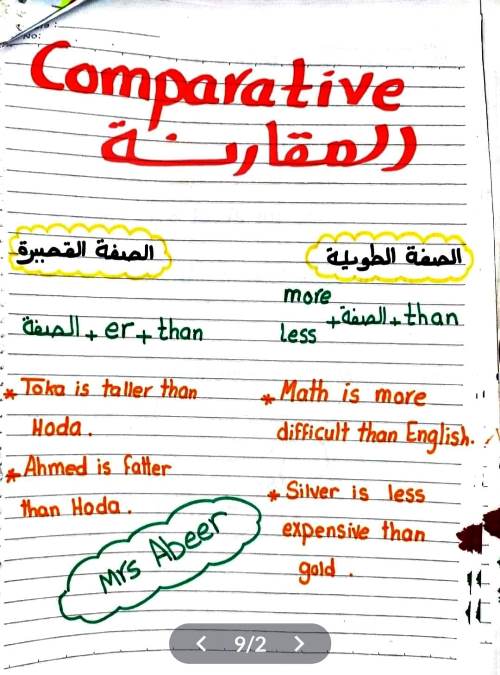 No:
Comparative
المقارنة
الصفة القصيرة
الصفة + er + than
* Toka is taller than
Hoda.
* Ahmed is fatter
than Hoda.
الصفة الطويلة
more
less
+ الصفة + than
* Math is more
difficult than English.
* Silver is less
expensive than
gold.
Mrs Abeer
< 9/2 >